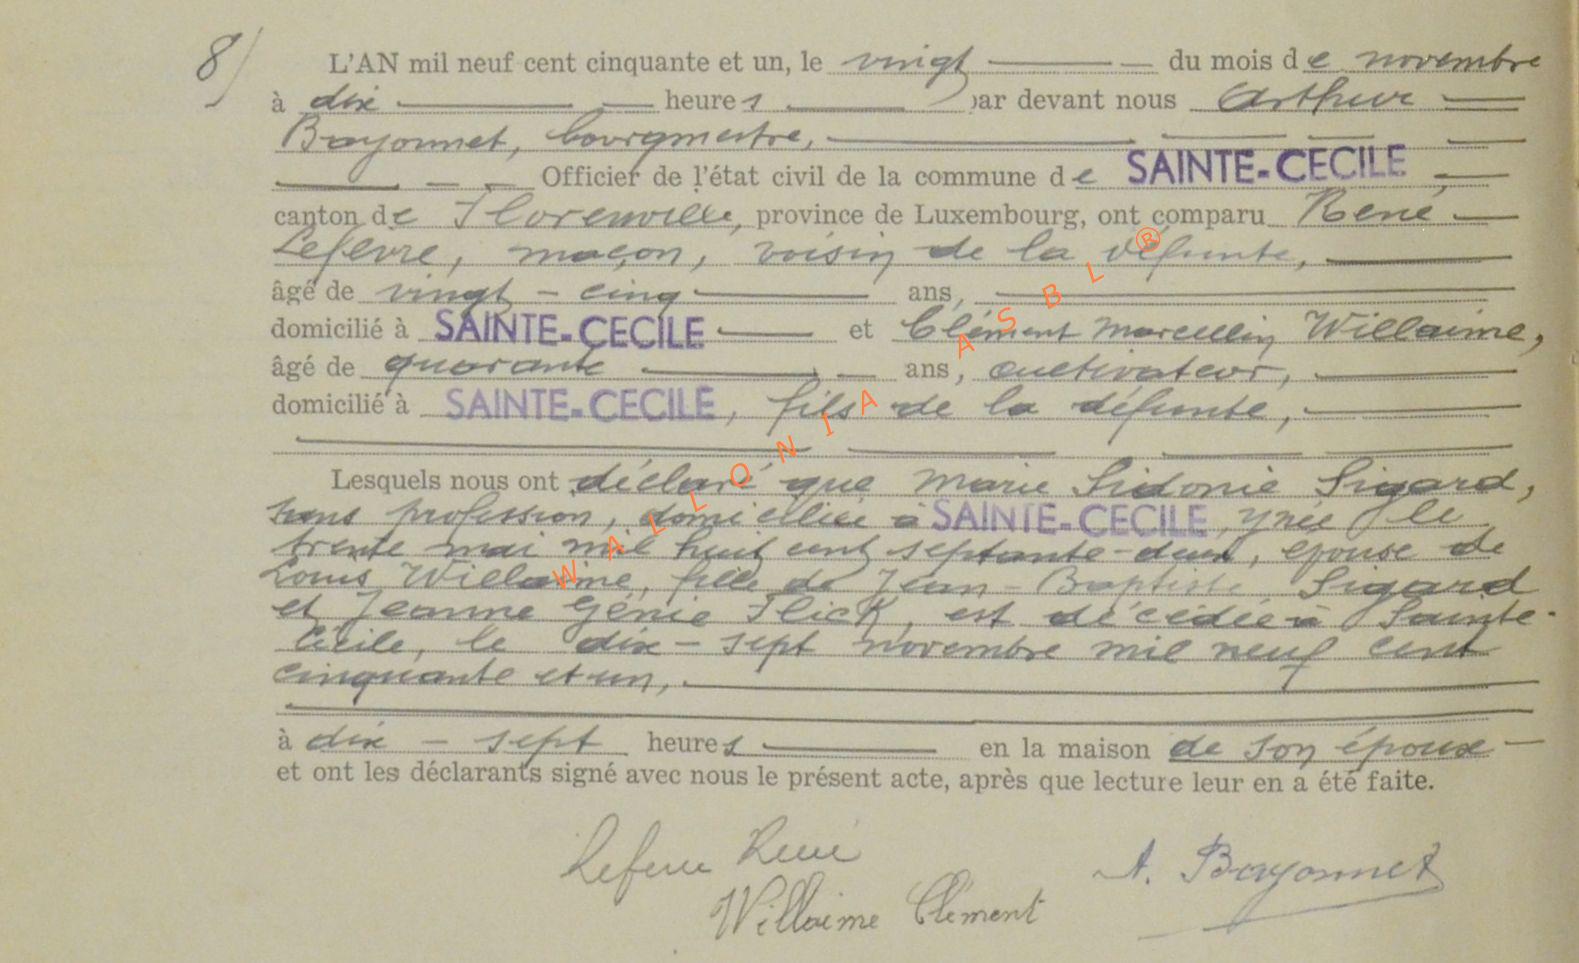 8/ L'AN mil neuf cent cinquante et un, le vingt du mois de novembre
à dix heures par devant nous Arthur
Bayonnet, bourgmestre,
Officier de l'état civil de la commune de SAINTE-CECILE,
canton de Florenville, province de Luxembourg, ont comparu René
Lefèvre, maçon, voisin de la défunte,
âgé de vingt-cinq ans,
domicilié à SAINTE-CECILE et Clément Marcellin Willaime,
âgé de quarante ans, cultivateur,
domicilié à SAINTE-CECILE, fils de la défunte,
Lesquels nous ont déclaré que Marie Sidonie Sigard,
sans profession, domiciliée à SAINTE-CECILE, y née le
trente mai mil huit cent septante-deux, épouse de
Louis Willaime, fille de Jean-Baptiste Sigard
et Jeanne Génie Flick, est décédée à Sainte-
Cécile, le dix-sept novembre mil neuf cent
cinquante et un,
à dix-sept heures en la maison de son époux
et ont les déclarants signé avec nous le présent acte, après que lecture leur en a été faite.
Lefevre René
A. Bayonnet
Willaime Clément
WALLONIA ASBL ®